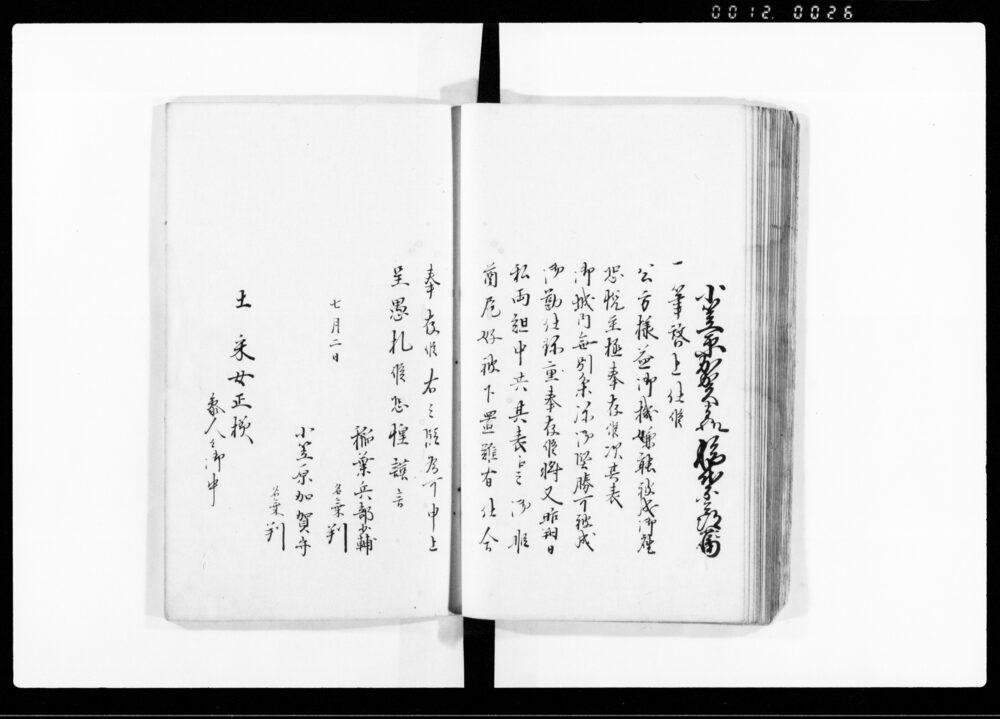 0012.0026
小笠原加賀守 稲葉兵部少輔
一筆啓上仕候
公方様益御機嫌能被成御座
恐悦至極奉存候次其表
御城内無別条弥御堅勝可被成
御勤仕珍重奉存候将又昨朔日
私両組中共其表 御暇
首尾好被下置難有仕合
奉存候右之段為可申上
呈愚札候恐惶謹言
七月二日
稲葉兵部少輔
名乗判
小笠原加賀守
名乗判
土 采女正様
参人々御中